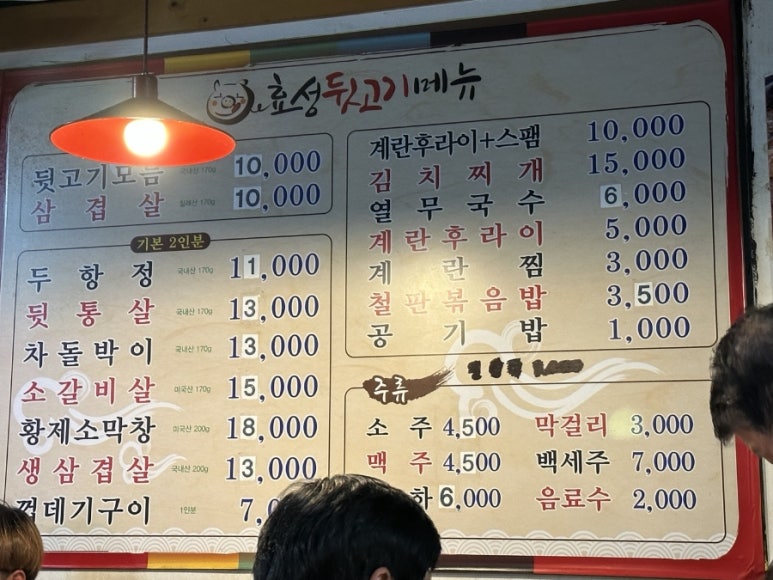 효성뒷고기메뉴
뒷고기모듬 국내산 170g 10,000
삼겹살 칠레산 170g 10,000
기본 2인분
두항정 국내산 170g 11,000
뒷통살 국내산 170g 13,000
차돌박이 국내산 170g 13,000
소갈비살 미국산 170g 15,000
황제소막창 미국산 200g 18,000
생삼겹살 국내산 200g 13,000
껍데기구이 1인분 7,0
계란후라이+스팸 10,000
김치찌개 15,000
열무국수 6,000
계란후라이 5,000
계란찜 3,000
철판볶음밥 3,500
공기밥 1,000
주류
소주 4,500 막걸리 3,000
맥주 4,500 백세주 7,000
하 6,000 음료수 2,000